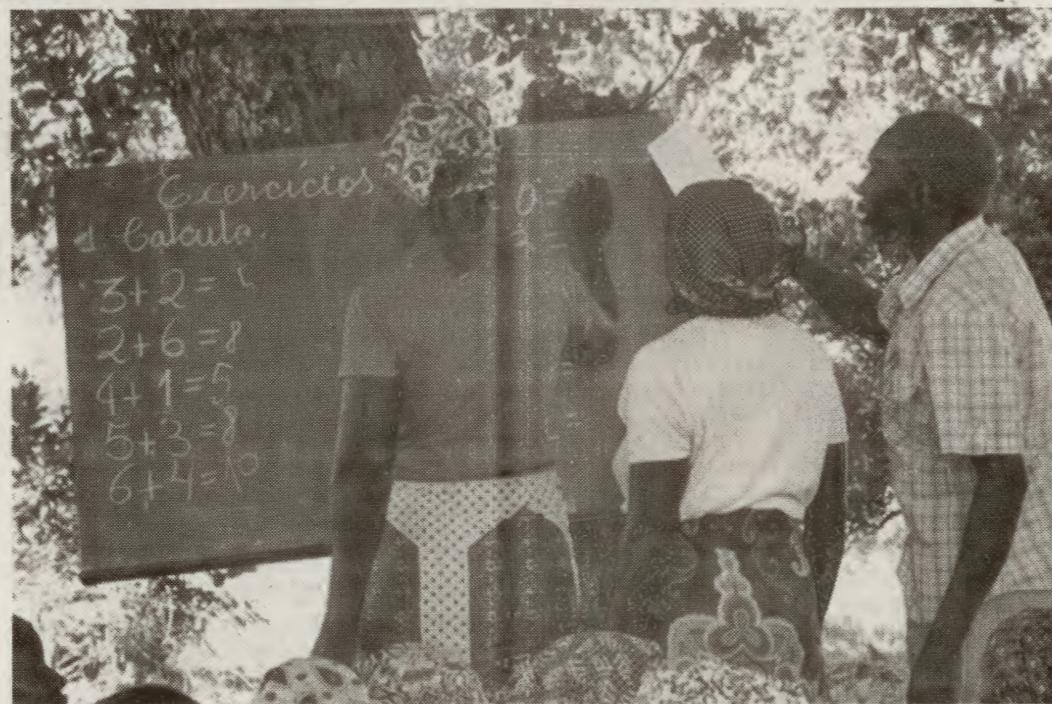 Exercícios
1 Calcula.
3+2=
2+6=8
4+1=5
5+3=8
6+4=10